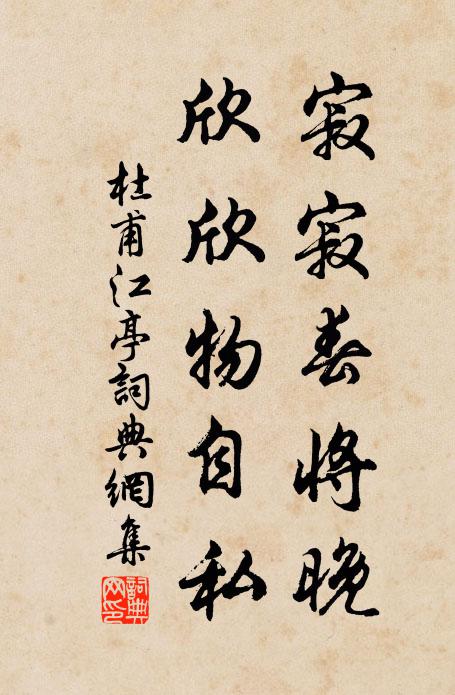 寂寂春將晚
欣欣物自私
杜甫江亭詞典網集
詞典網印